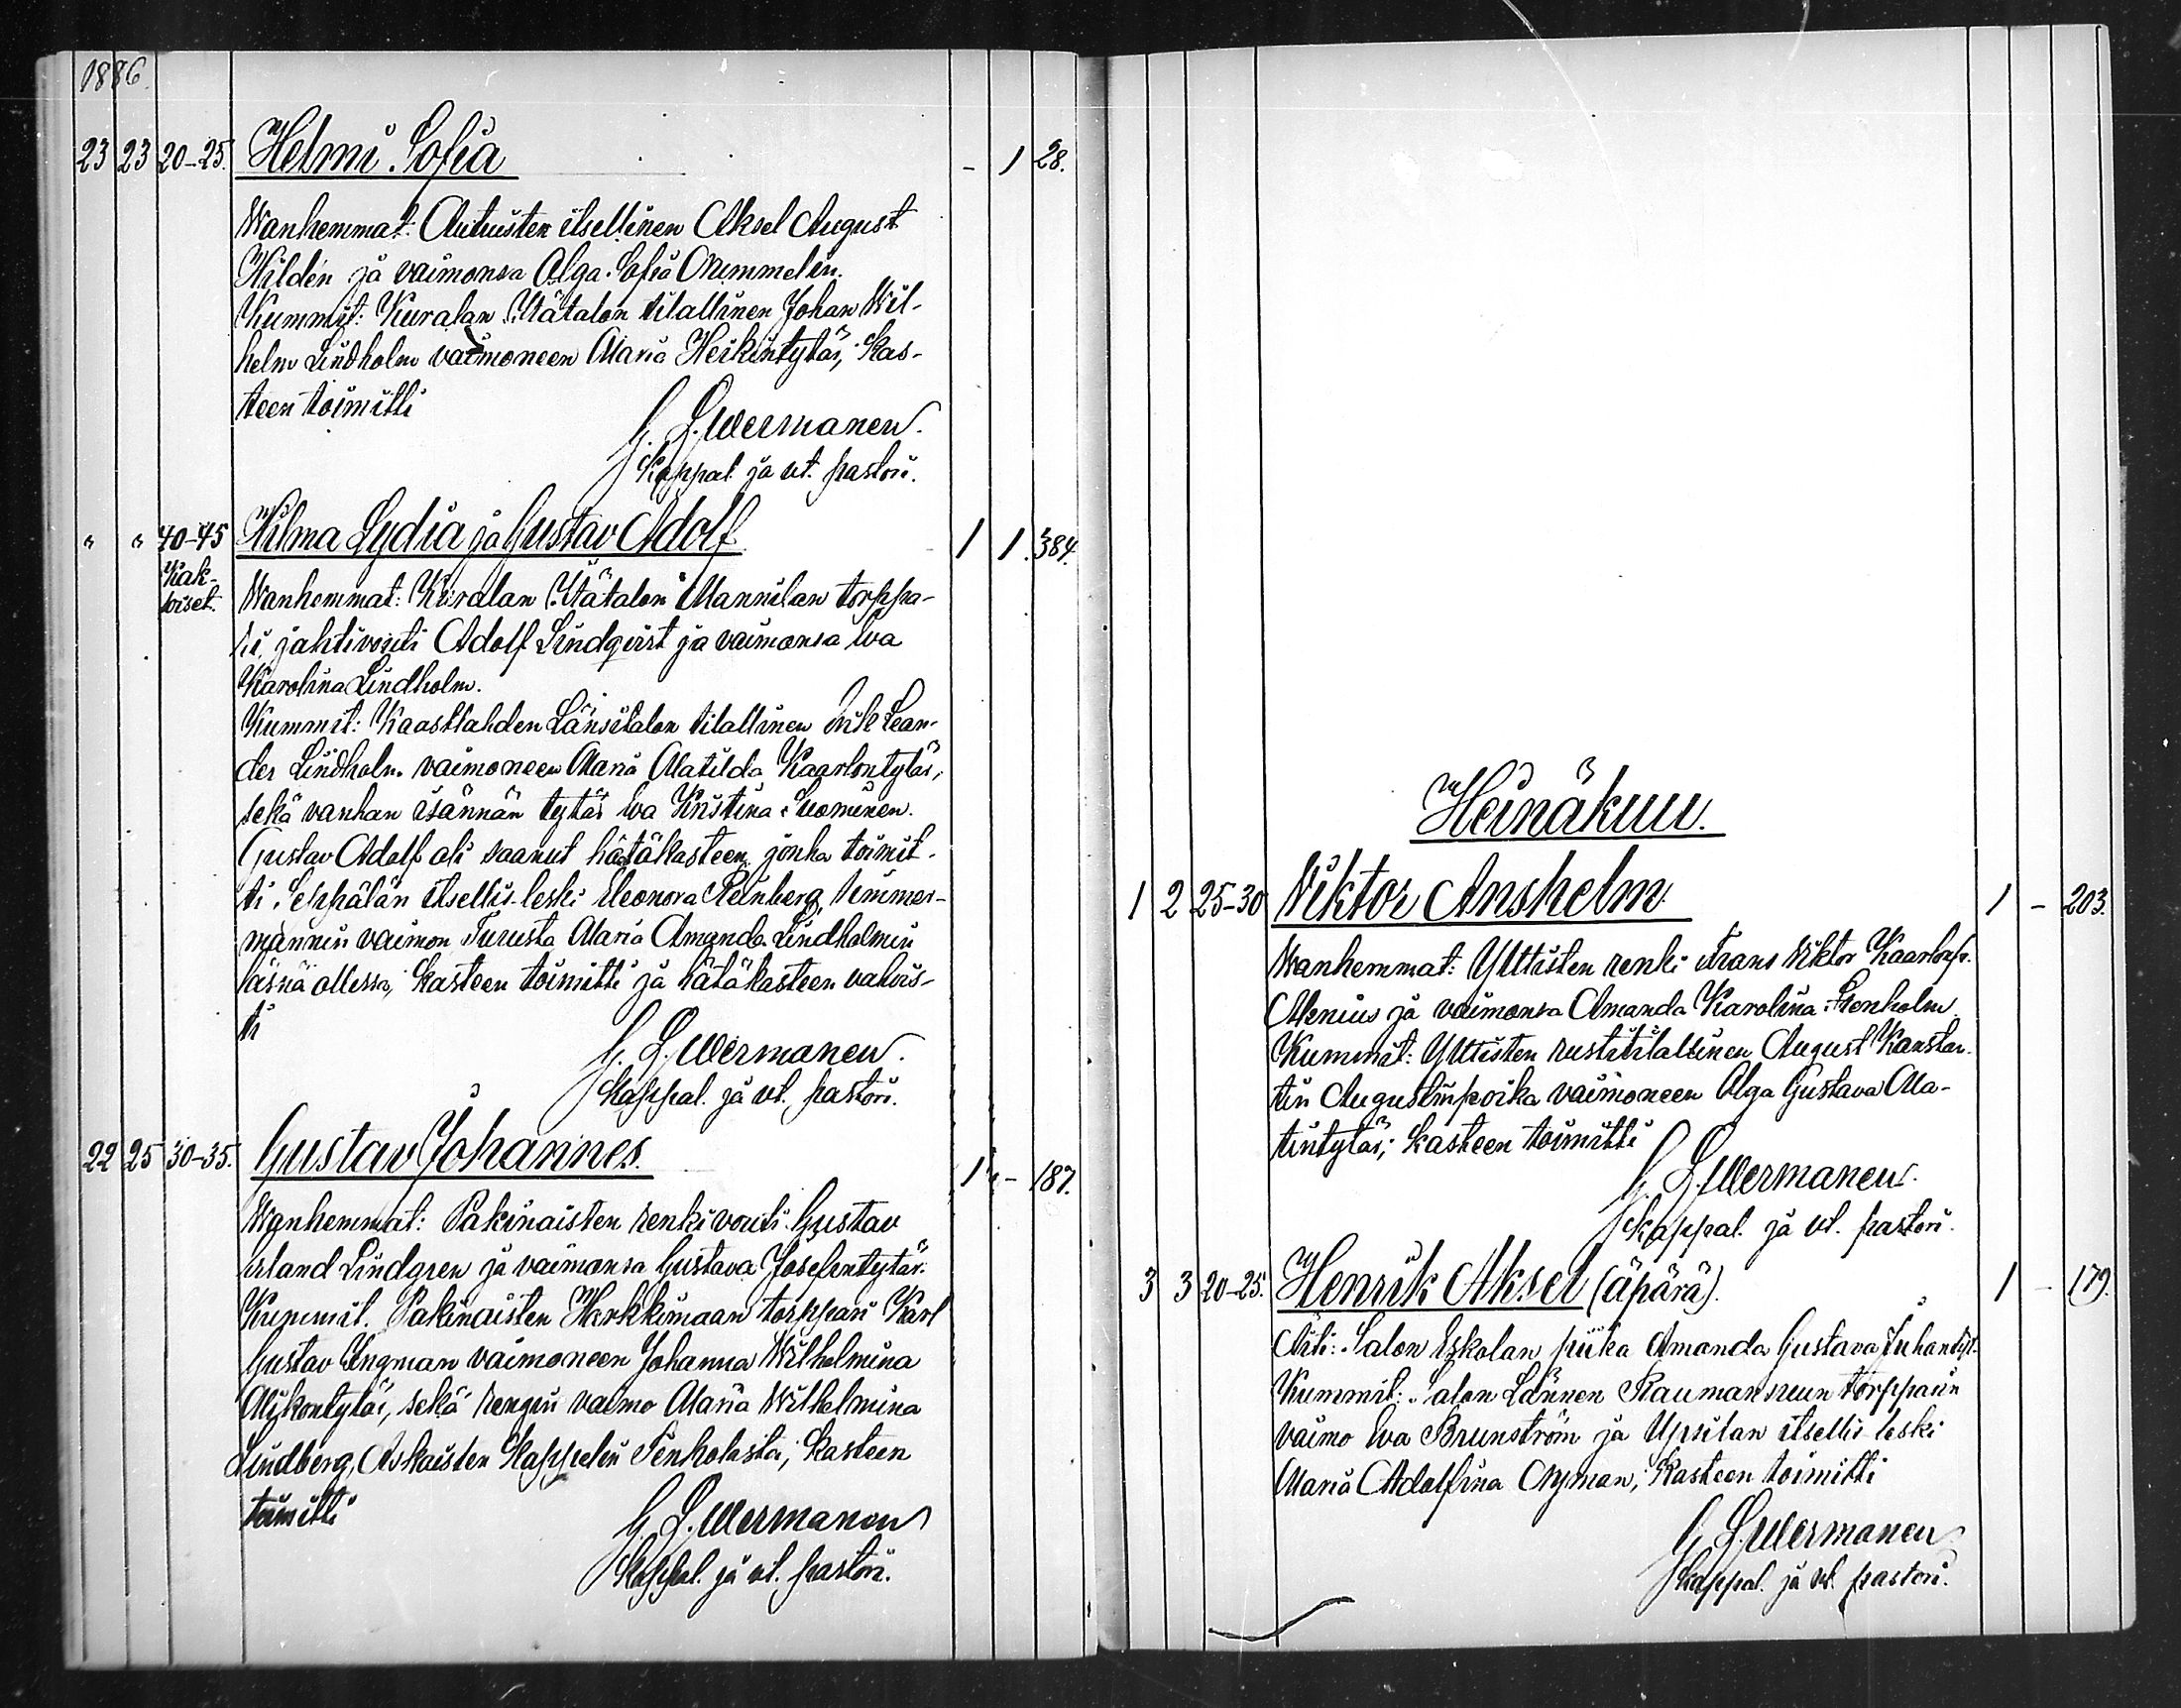 1886.
23 23 20-25. Helmi Sofia - 1 28.
Wanhemmat: Autuisten itsellinen Aksel August
Wildén ja vaimonsa Olga Sofia Nummelin.
Kummit: Kuralan Ylätalon tilallinen Johan Wil-
helm Lindholm vaimoneen Maria Heikintytär; Kas-
teen toimitti
G. L. Wermanen.
Kappal. ja vt. pastori.
" " 40-45 Wilma Lydia ja Gustav Adolf 1 1. 384.
Kak-
soiset.
Wanhemmat: Kuralan Ylätalon Mannilan torppa-
ri, jahtivouti Adolf Lindqvist ja vaimonsa Eva
Karolina Lindholm.
Kummit: Kaastlahden Länsitalon tilallinen Erik Lean-
der Lindholm vaimoneen Maria Matilda Kaarlontytär,
sekä vanhan isännän tytär Eva Kristina Suominen.
Gustav Adolf oli saanut hätäkasteen, jonka toimit-
ti Seppälän itsellis-leski Eleonora Reinberg, timmer-
mannin vaimon Turusta Maria Amanda Lindholmin
läsnä ollessa; Kasteen toimitti ja hätäkasteen vahvis-
ti
G. L. Wermanen.
Kappal. ja vt. pastori.
22 25 30-35. Gustav Johannes. 1 - 187.
Wanhemmat: Pakinaisten renkivouti Gustav
Erland Lindgren ja vaimonsa Gustava Josefintytär.
Kummit. Pakinaisten Harkkimaan torppari Karl
Gustav Engman vaimoneen Johanna Wilhelmina
Mikontytär, sekä rengin vaimo Maria Wilhelmina
Lindberg, Askaisten Kappelin Tenholasta; Kasteen
toimitti
G. L. Wermanen
Kappal. ja vt. pastori.
Heinäkuu.
1 2 25-30 Viktor Anshelm. 1 - 203.
Wanhemmat: Ylttisten renki Frans Viktor Kaarlonp.
Alenius ja vaimonsa Amanda Karolina Stenholm.
Kummit: Ylttisten rustitilallinen August Konstan-
tin Augustinpoika vaimoneen Olga Gustava Ma-
tintytär; Kasteen toimitti
G. L. Wermanen.
Kappal. ja vt. pastori.
3 3 20-25. Henrik Aksel (äpärä). 1 - 179.
Äiti: Salon Eskolan piika Amanda Gustava Juhantyt.
Kummit: Salon Lännen Raumansuun torpparin
vaimo Eva Brunström ja Upsilan itsellis leski
Maria Adolfina Nyman; Kasteen toimitti
G. L. Wermanen
Kappal. ja vt. pastori.